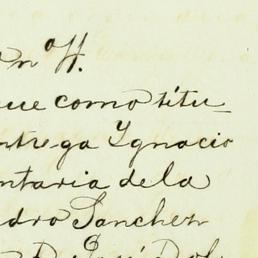 nº H.
que como titu-
ntrega Ygnacio
ntaria dela
dro Sanchez
D. José Dol